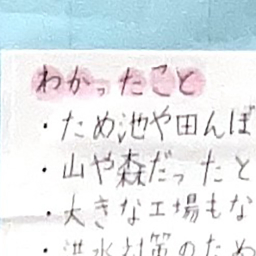 わかったこと
・ため池や田んぼ
・山や森だったと
・大きな工場もな
・洪水対策のため